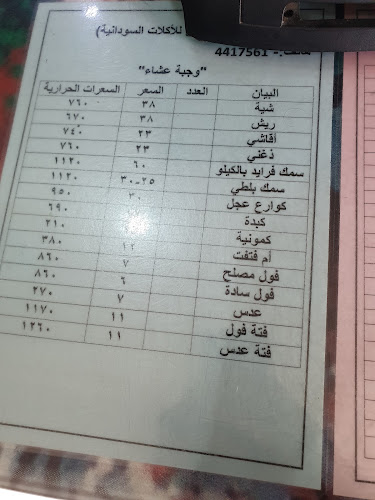 للأكلات السودانية)
4417561
"وجبة عشاء"
البيان العدد السعر السعرات الحرارية
شية ٣٨ ٧٦٠
ريش ٣٨ ٦٧٠
أقاشي ٢٣ ٧٤٠
دغني ٢٣ ٧٦٠
سمك فرايد بالكيلو ٦٠ ١١٢٠
سمك بلطي ٢٥-٣٠ ١١٢٠
كوارع عجل ٣٠ ٩٥٠
كبدة ٦٩٠
كمونية ٢١٠
أم فتفت ١٢ ٣٨٠
فول مصلح ٧ ٨٦٠
فول سادة ٦ ٨٦٠
عدس ٧ ٢٧٠
فتة فول ١١ ١١٧٠
فتة عدس ١١ ١٢٦٠